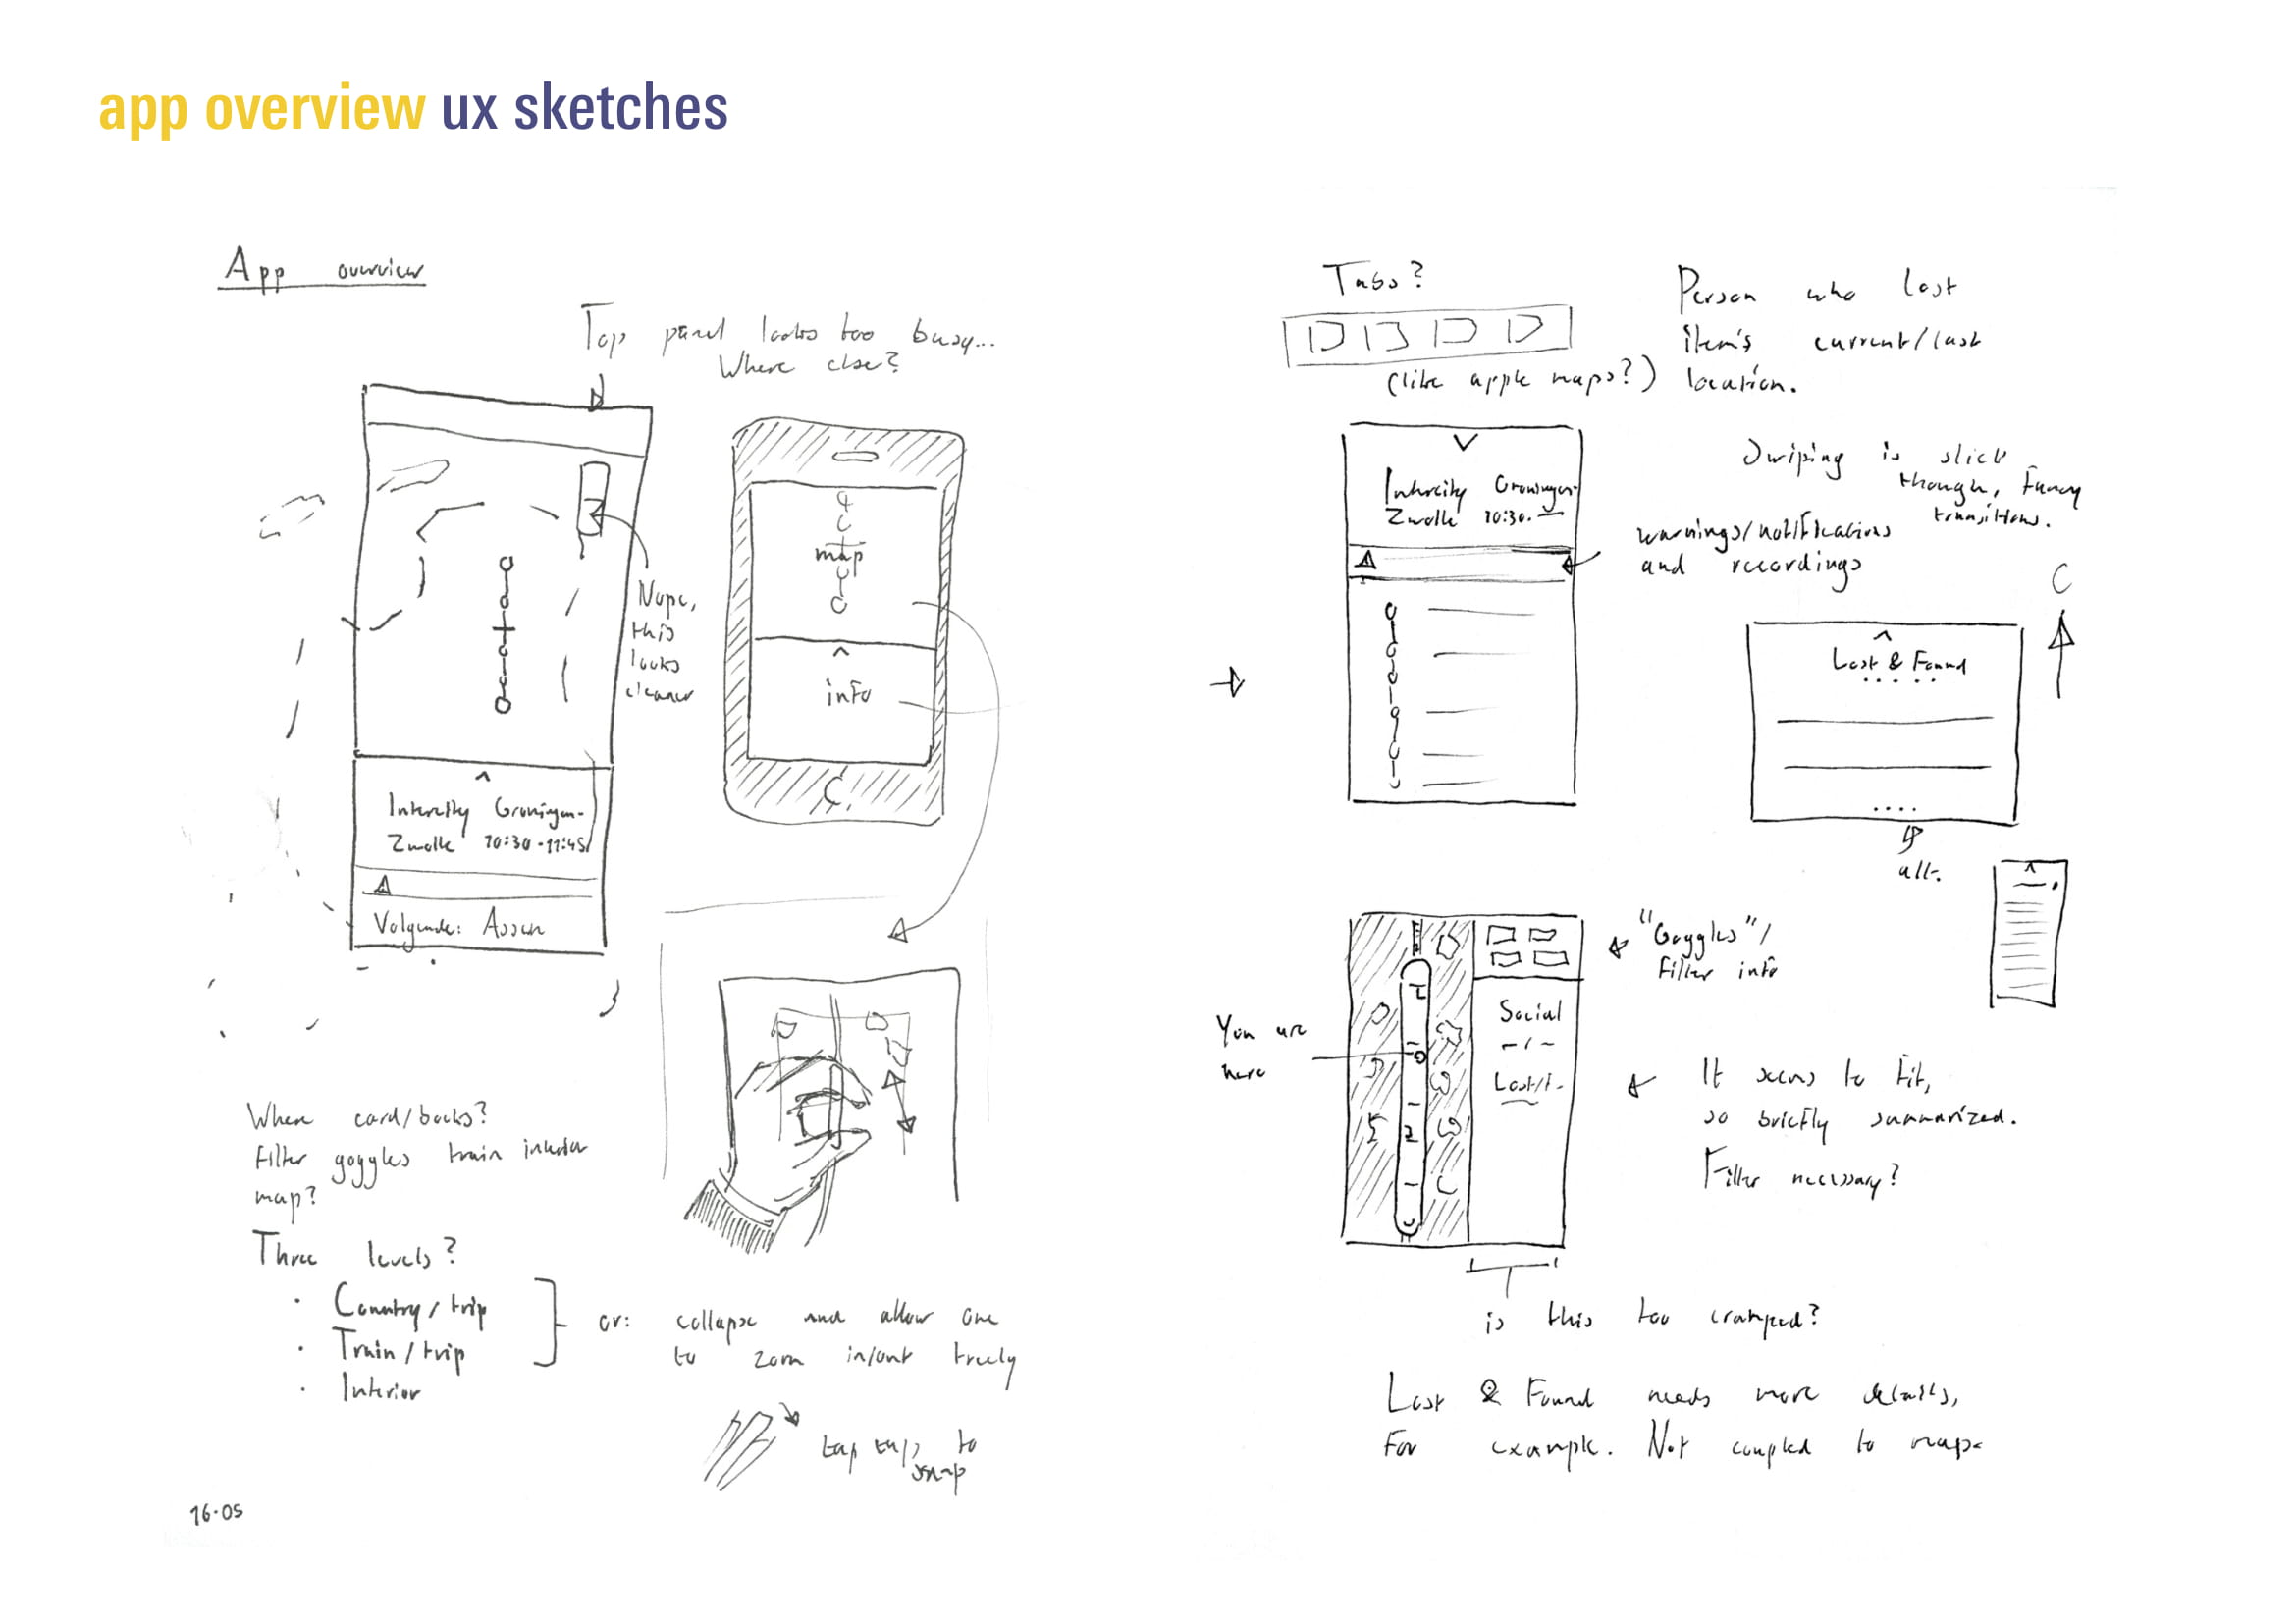 app overview ux sketches
App overview
Top panel looks too busy...
Where else?
Nope,
this
looks
cleaner
map
^
info
^
Intercity Groningen-
Zwolle 10:30-11:45
Volgende: Assen
Where card/backs?
Filter goggles train interior
map?
Three levels?
· Country/trip
· Train/trip
· Interior
or: collapse and allow one
to zoom in/out freely
tap tups to
snap
16·05
Tabs?
(like apple maps?)
Person who lost
item's current/last
location.
Swiping is slick
though, Fancy
transitions.
Intercity Groningen-
Zwolle 10:30.
warnings/notifications
and recordings
^
Lost & Found
alt.
"Goggles"/
Filter info
You are
here
1
2
Social
Lost/F.
It seems to fit,
so briefly summarized.
Filter necessary?
is this too cramped?
Lost & Found needs more details,
For example. Not coupled to map.